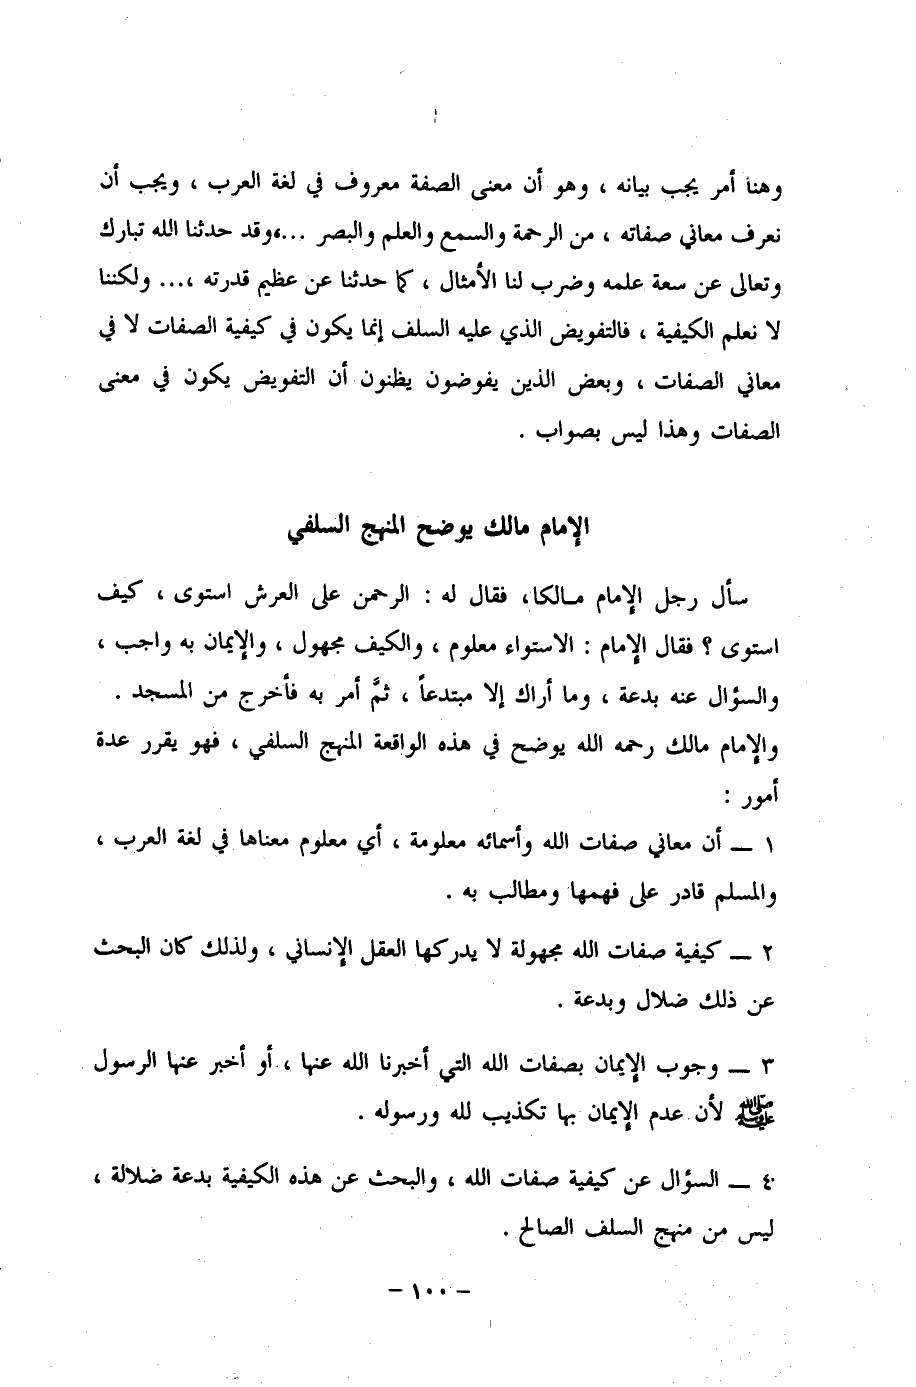 وهنا أمر يجب بيانه ، وهو أن معنى الصفة معروف في لغة العرب ، ويجب أن
نعرف معاني صفاته ، من الرحمة والسمع والعلم والبصر ...،وقد حدثنا الله تبارك
وتعالى عن سعة علمه وضرب لنا الأمثال ، كما حدثنا عن عظيم قدرته ،... ولكننا
لا نعلم الكيفية ، فالتفويض الذي عليه السلف إنما يكون في كيفية الصفات لا في
معاني الصفات ، وبعض الذين يفوضون يظنون أن التفويض يكون في معنى
الصفات وهذا ليس بصواب .
الإمام مالك يوضح المنهج السلفي
سأل رجل الإمام مـالكا، فقال له : الرحمن على العرش استوى ، كيف
استوى ؟ فقال الإمام : الاستواء معلوم ، والكيف مجهول ، والإيمان به واجب ،
والسؤال عنه بدعة ، وما أراك إلا مبتدعاً ، ثمَّ أمر به فأخرج من المسجد .
والإمام مالك رحمه الله يوضح في هذه الواقعة المنهج السلفي ، فهو يقرر عدة
أمور :
١ ــ أن معاني صفات الله وأسمائه معلومة ، أي معلوم معناها في لغة العرب ،
والمسلم قادر على فهمها ومطالب به .
٢ ــ كيفية صفات الله مجهولة لا يدركها العقل الإنساني ، ولذلك كان البحث
عن ذلك ضلال وبدعة .
٣ ــ وجوب الإيمان بصفات الله التي أخبرنا الله عنها ، أو أخبر عنها الرسول
ﷺ لأن عدم الإيمان بها تكذيب لله ورسوله .
٤ ــ السؤال عن كيفية صفات الله ، والبحث عن هذه الكيفية بدعة ضلالة ،
ليس من منهج السلف الصالح .
– ١٠٠ –